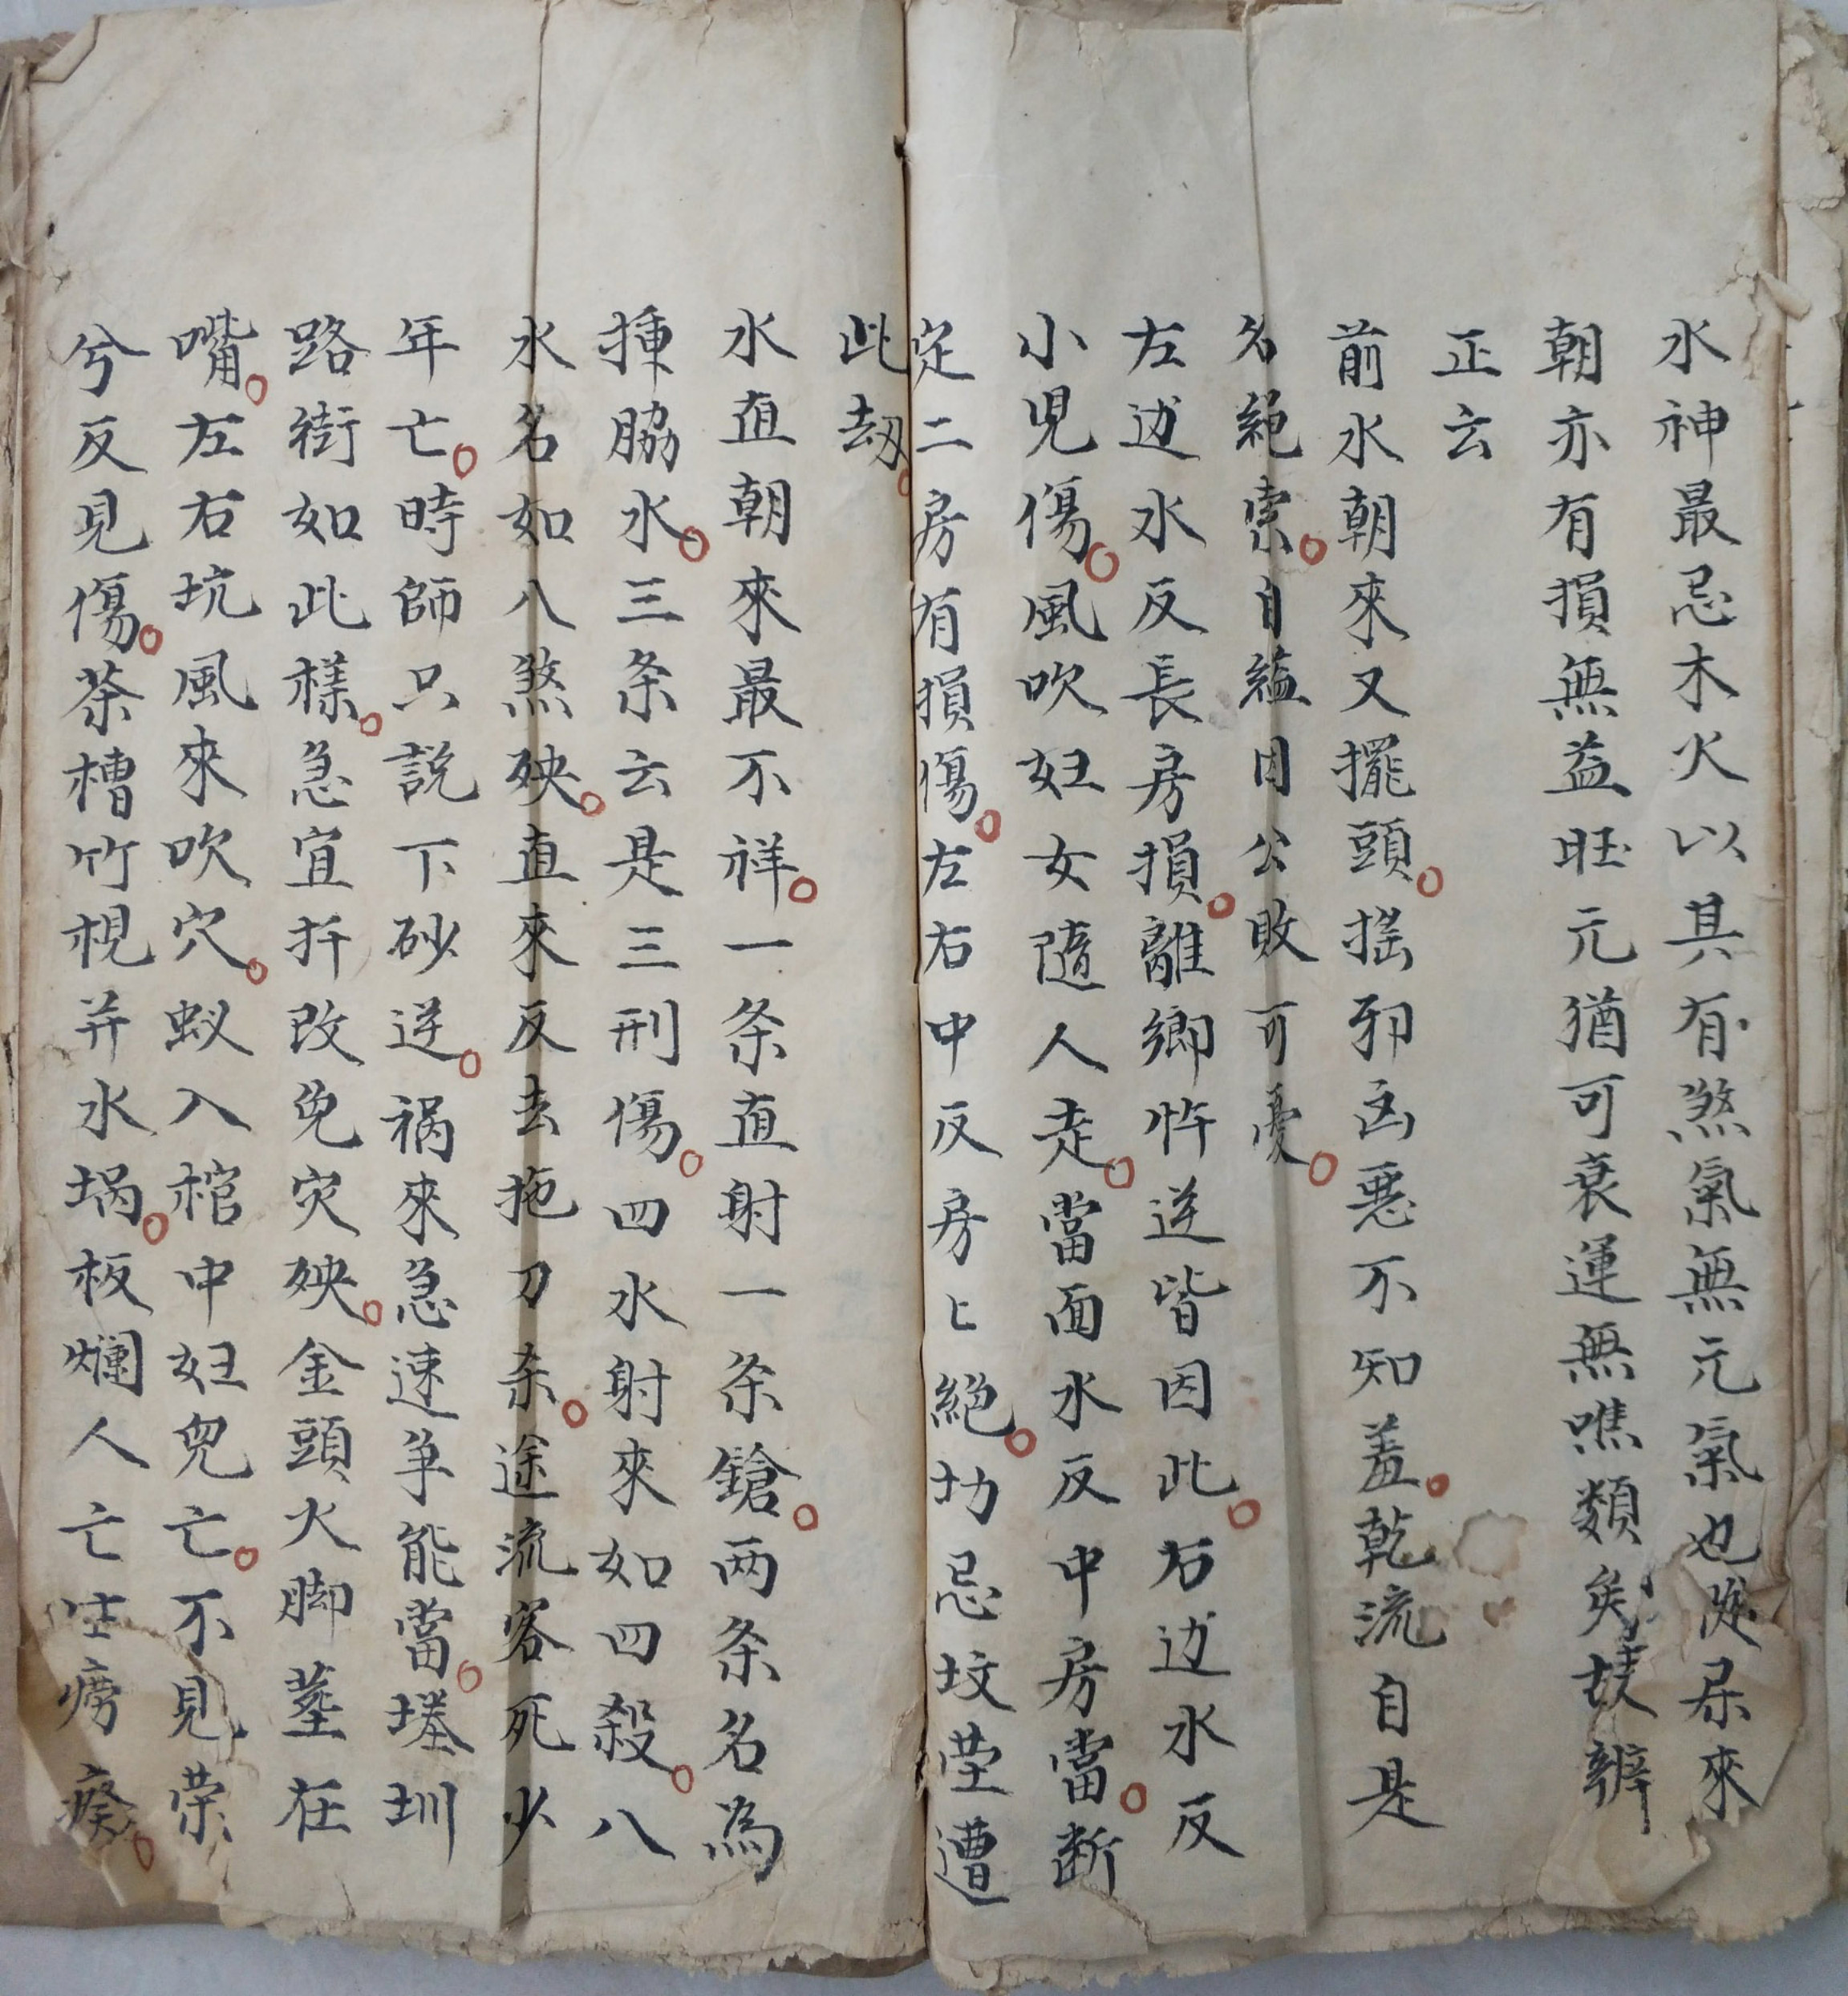 水神最忌木火以其有煞氣無元氣也從來
朝亦有損無益旺元猶可衰運無噍類矣辨
正云
前水朝來又擺頭。摇邪凶惡不知羞。乾流自是
名絕索。自縊因公敗可憂。
左边水反長房損。離鄉忤逆皆因此。右边水反
小児傷。風吹妇女隨人走。當面水反中房當。断
定二房有損傷。左右中反房〻絕。切忌坟茔遭
此劫。
水直朝來最不祥。一条直射一条鎗。两条名為
揷脇水。三条云是三刑傷。四水射來如四殺。八
水名如八煞殃。直來反去拖刀杀。途流客死少
年亡。時師只説下砂逆。祸來急速争能當。堘圳
路街如此樣。急宜扦改免災殃。金頭火脚塟在
嘴。左右坑風來吹穴。蚁入棺中妇兒亡。不見荣
兮反見傷。茶槽竹梘并水堝。板爛人亡生痨癢。